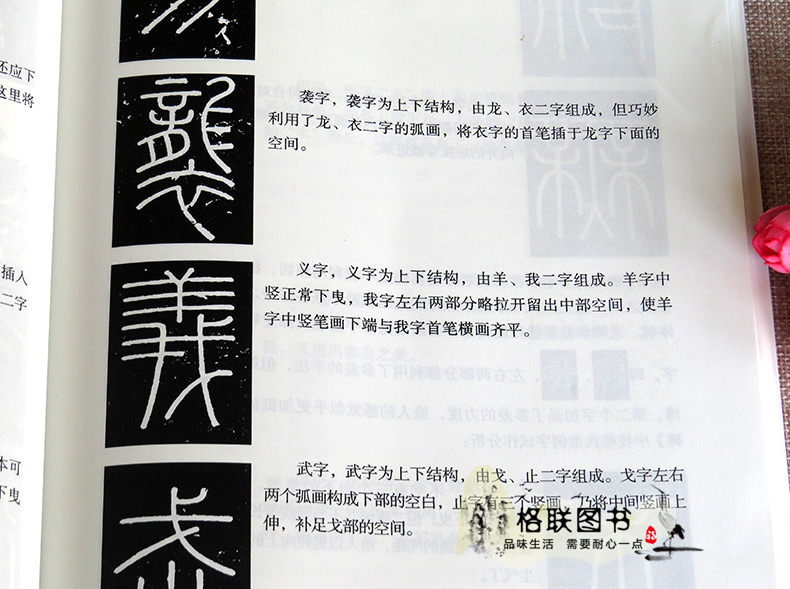 还应下
这里将
插入
二字
本可
下曳
袭
袭字，袭字为上下结构，由龙、衣二字组成，但巧妙
利用了龙、衣二字的弧画，将衣字的首笔插于龙字下面的
空间。
義
义字，义字为上下结构，由羊、我二字组成。羊字中
竖正常下曳，我字左右两部分略拉开留出中部空间，使羊
字中竖笔画下端与我字首笔横画齐平。
武
武字，武字为上下结构，由戈、止二字组成。戈字左右
两个弧画构成下部的空白，止字有三个竖画，乃将中间竖画上
伸，补足戈部的空间。
格联图书
品味生活 需要耐心一点